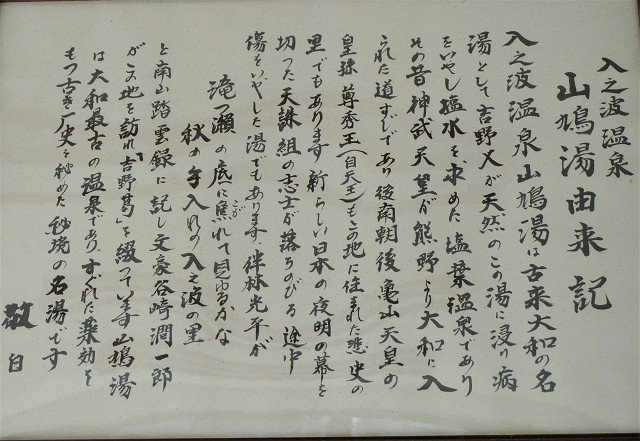 入之波温泉
山鳩湯由来記
入之波温泉山鳩湯は古来大和の名
湯として吉野人が天然のこの湯に浸り病
をいやし塩水を求めた塩葉温泉であり
その昔神武天皇が熊野より大和に入
られた道すじであり後南朝後亀山天皇の
皇孫尊秀王(自天王)もこの地に住まれた悲史の
里でもあります新らしい日本の夜明の幕を
切った天誅組の志士が落ちのびる途中
傷をいやした湯でもあります、伴林光平が
滝つ瀬の底に焦れて見ゆるかな
こが
秋の手入れの入之波の里
と南山踏雲録に記し文豪谷崎潤一郎
がこの地を訪れ「吉野葛」を綴っています山鳩湯
は大和最古の温泉であり、すぐれた薬効を
もつ古き厂史を秘めた秘境の名湯です
敬白